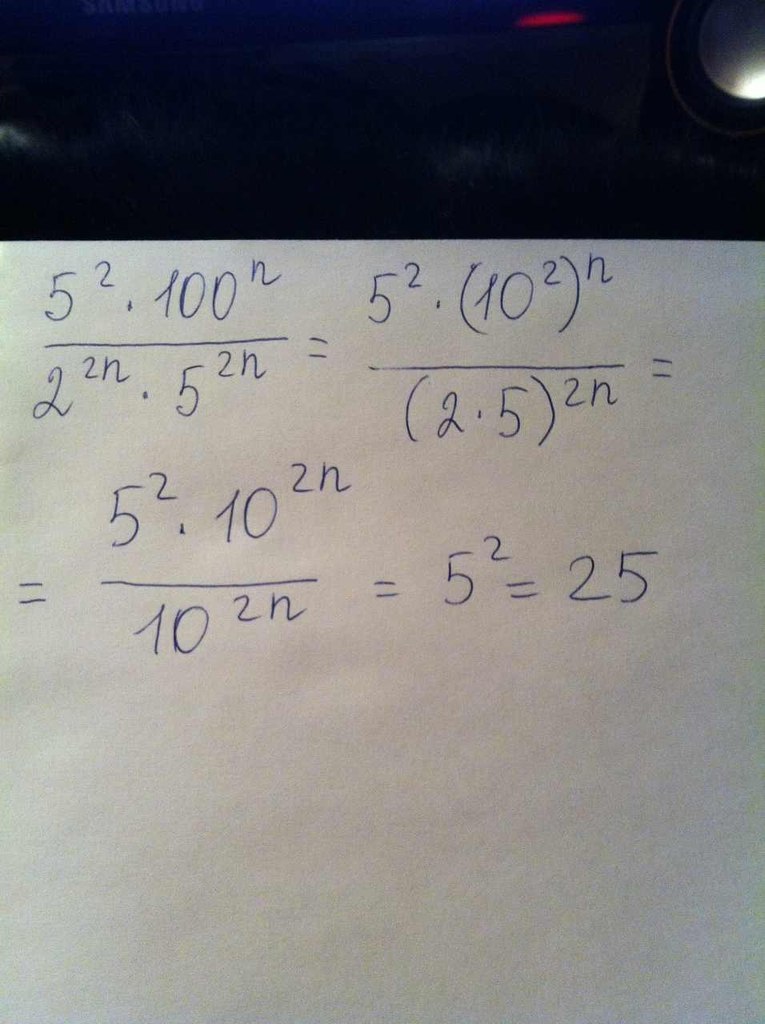 SAMSUNG
5² · 100ⁿ / 2²ⁿ · 5²ⁿ = 5² · (10²)ⁿ / (2 · 5)²ⁿ =
= 5² · 10²ⁿ / 10²ⁿ = 5² = 25